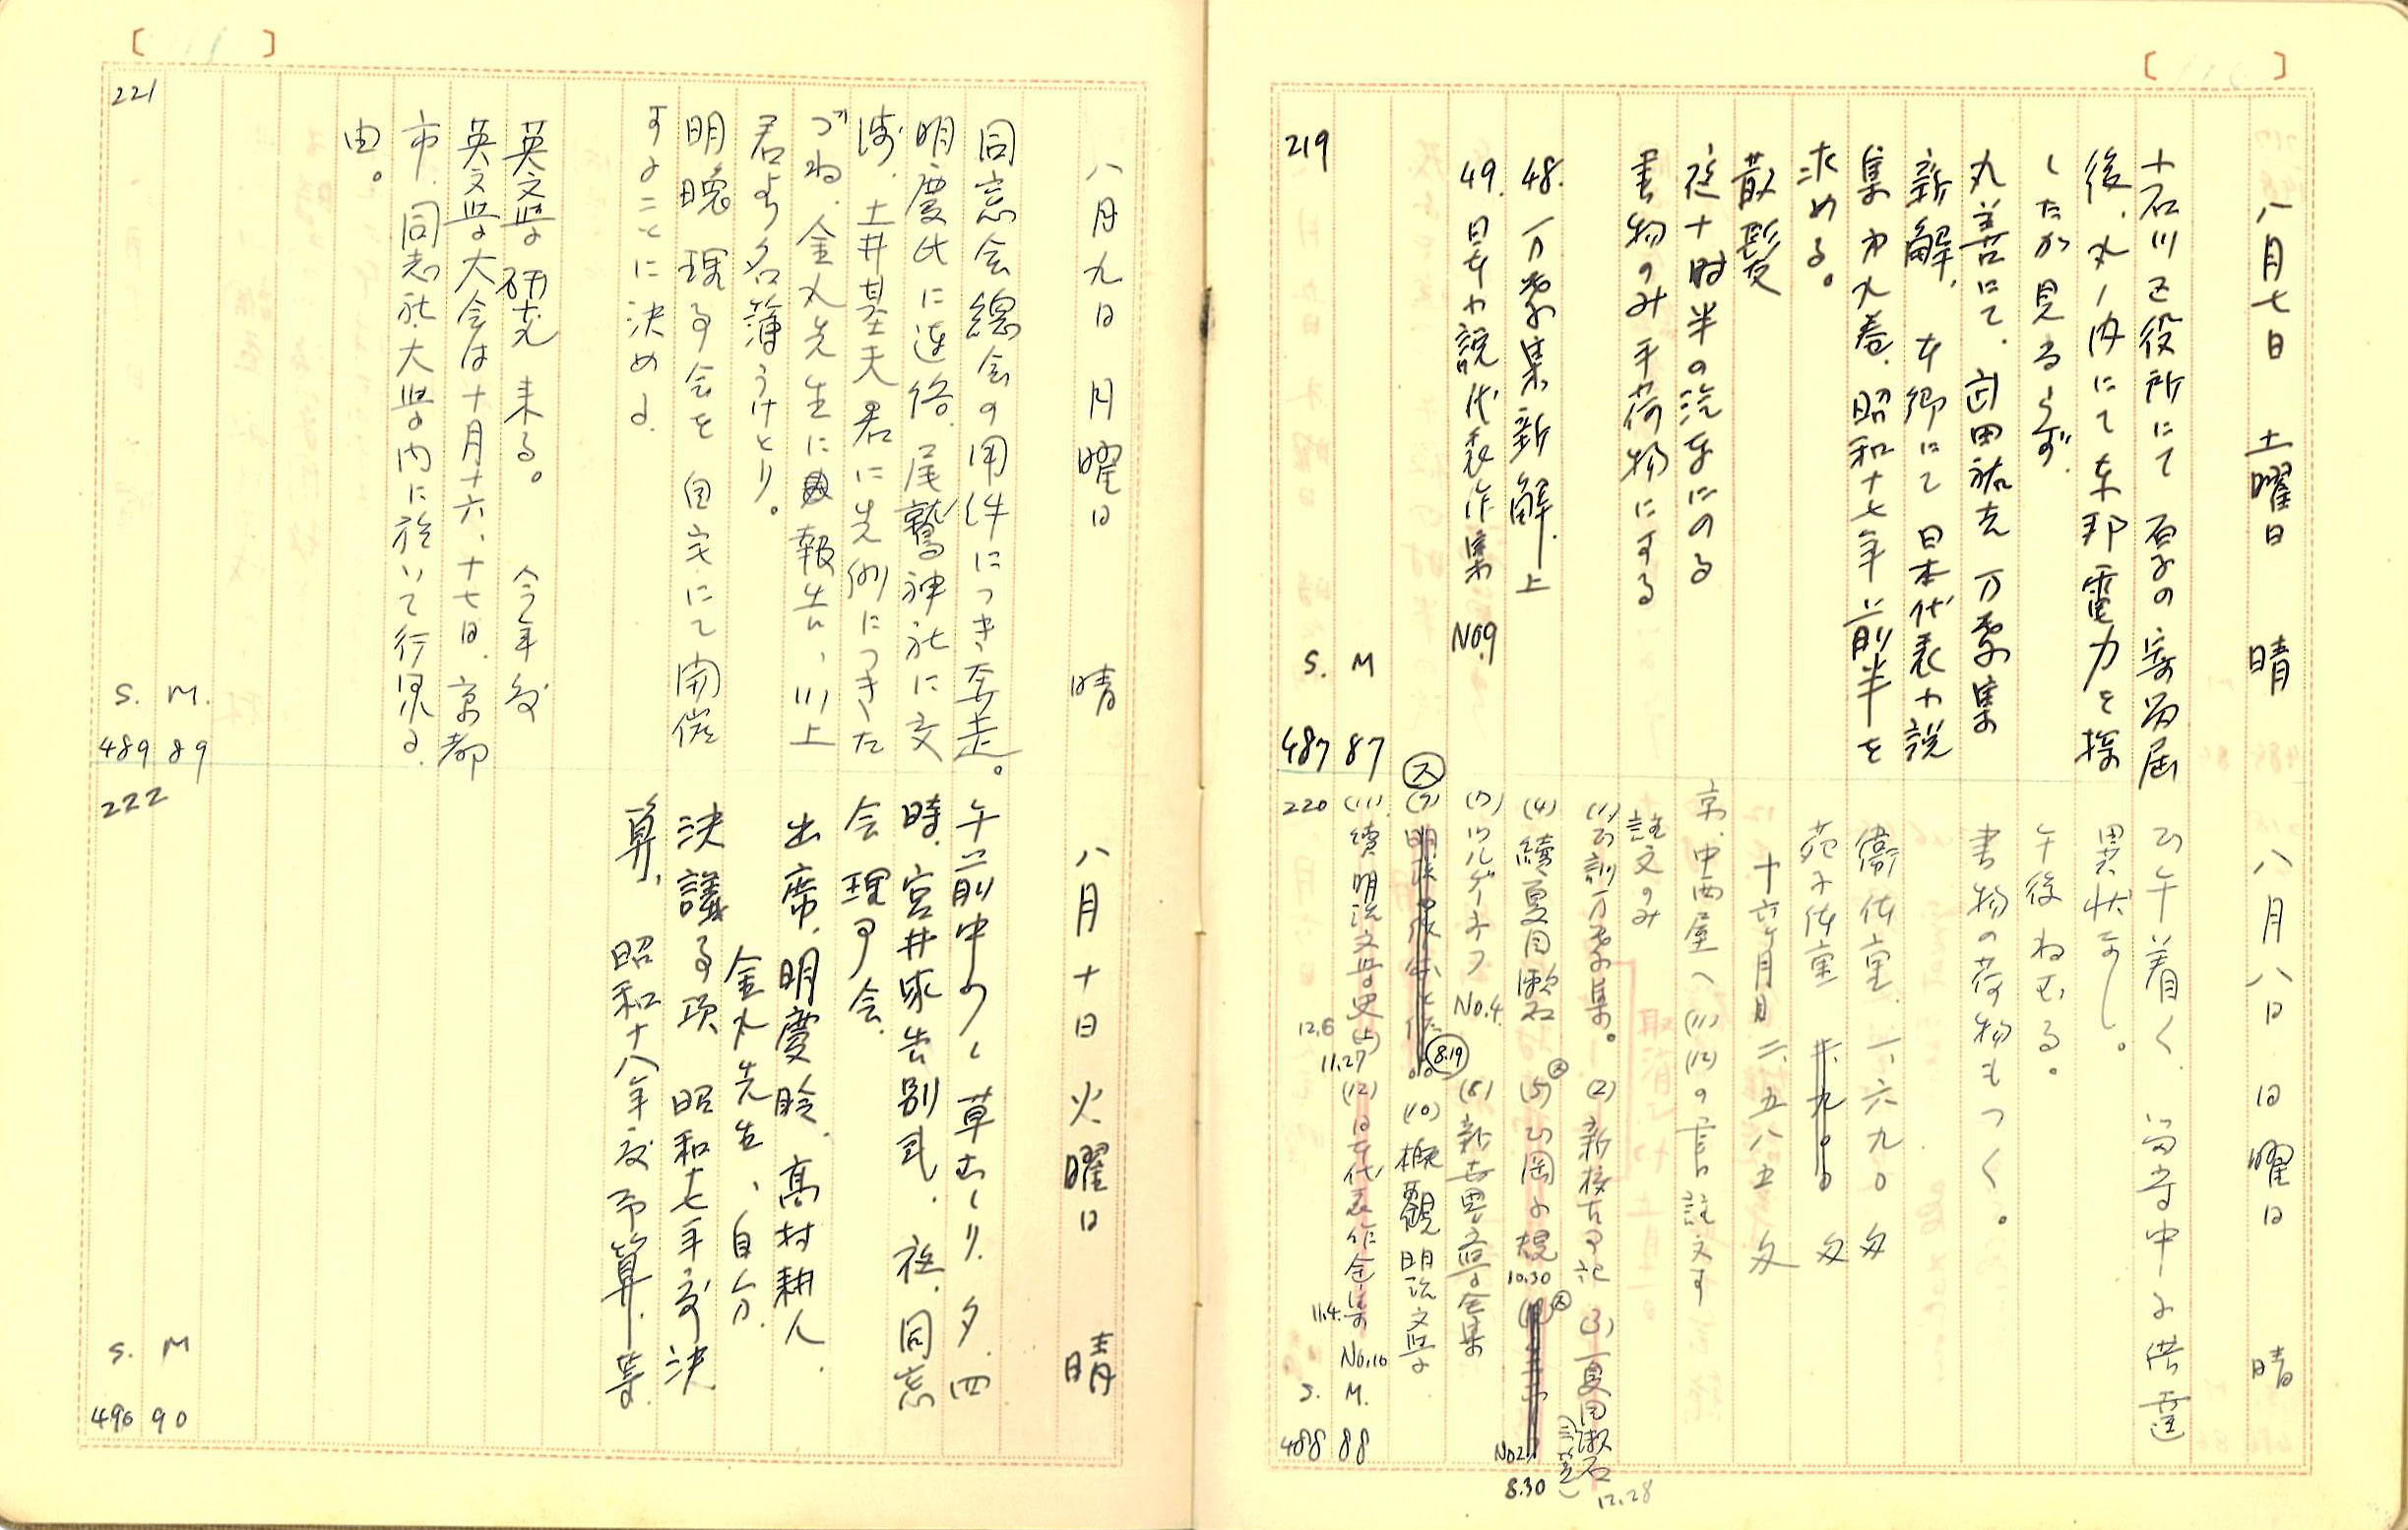 八月七日 土曜日 晴
小石川区役所にて 夏子の寄留届
後、丸ノ内にて東邦電力を探
したが見当らず。
丸善にて、武田祐吉 万葉集
新解、本郷にて日本代表小説
集 第九巻、昭和十七年 前半を
求める。
散髪
夜十時半の汽車にのる
書物のみ手荷物にする
48. 万葉集新解 上
49. 日本小説代表作集 No9
219
S. M
487 87
八月八日 日曜日 晴
午着く
異状なし。
午後ねむる。
書物の荷物もつく。
衛体重 一、六九〇 匁
苑子体重 匁
十六ヶ月目 二、五八五 匁
京、中西屋へ (11)(12)の二冊註文す
註文のみ
(1) 訓万葉集。 (2) 新校古事記 (3) 夏目漱石 12.28
(4) 續夏目漱石 (5) 岡子規 10.30 No2 8.30
(7) ツルゲーネフ No.4. (8) 新世界文学全集
8.19 (10) 概観明治文学
(11) 續明治文学史(上) 11.27 12.6 (12) 日本代表作全集 No.10 11.4.
220
S. M.
488 88
八月九日 月曜日 晴
同窓会総会の用件につき奔走。
明慶氏に連絡、尾鷲神社に交
渉、土井基夫君に先例につきた
づね、金丸先生に報告、川上
君より名簿うけとり。
明晩 理事会を自宅にて開催
することに決める。
英文学研究 来る。 今年度
英文学大会は十月十六、十七日、京都
市、同志社大学内に於いて行はる
由。
221
S. M.
489 89
八月十日 火曜日 晴
午前中少し草むしり。夕、四
時、宮井家告別式、夜、同窓
会理事会。
出席、明慶 、高村耕人、
金丸先生、自分。
決議事項 昭和十七年度決
算、昭和十八年度予算、等
222
S. M
490 90